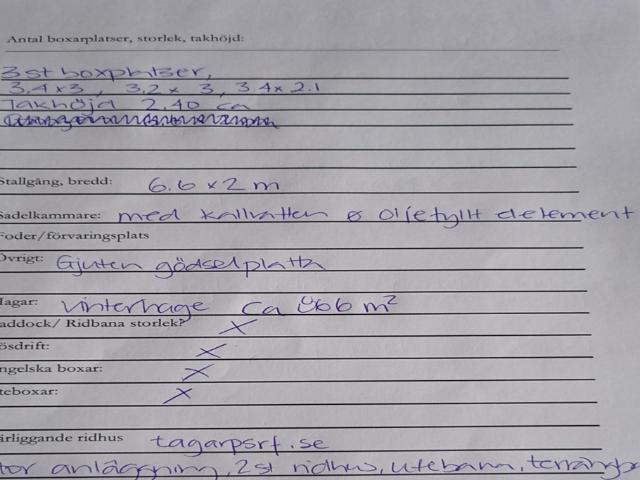 Antal boxarplatser, storlek, takhöjd:
3 st boxplatser,
3,4 x 3 , 3,2 x 3, 3.4 x 2.1
Takhöjd 2,40 ca
Stallgång, bredd: 6.6 x 2 m
Sadelkammare: med kallvatten & oljefyllt element
Foder/förvaringsplats
Övrigt: Gjuten gödselplatta
Hagar: Vinterhage ca m²
addock/ Ridbana storlek? X
ösdrift: X
ngelska boxar: X
teboxar: X
ärliggande ridhus tagarpsrf.se
tor anläggning, 2 st ridhus, utebana, terrängba